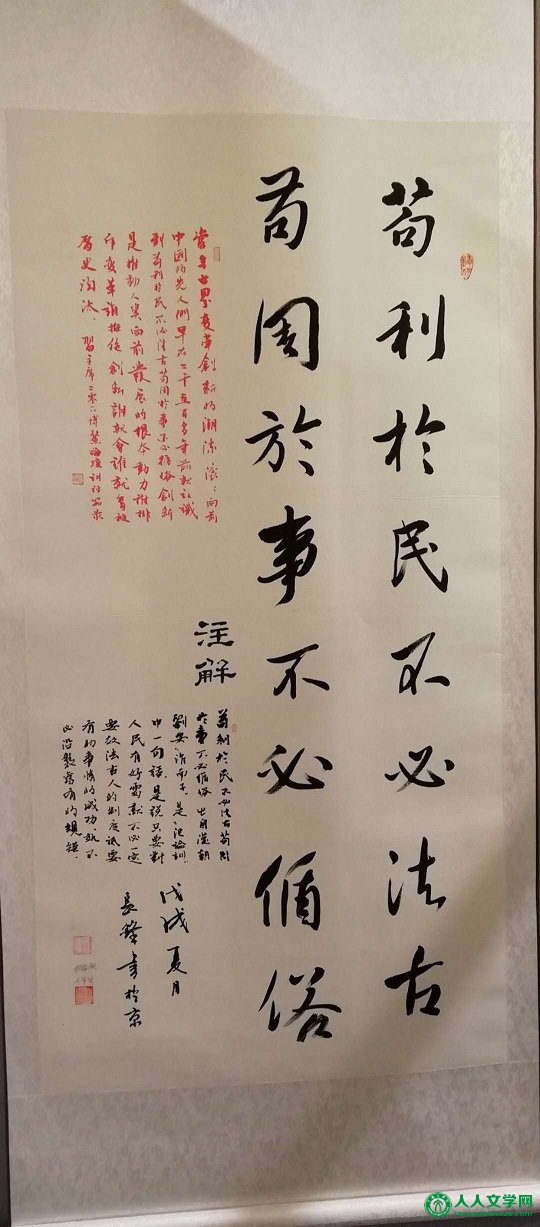 苟利於民不必法古
苟周於事不必循俗
當今世界變革創新的潮流滾滾向前
中國的先人們早在二千五百多年前就認識
到苟利於民不必法古苟周於事不必循俗創新
是推動人类向前發展的根本動力誰排
斥變革誰拒絕創新誰就會誰就會被
歷史淘汰．習主席二零博鰲論壇講話
注解
苟利於民不必法古苟周
於事不必循俗 出自漢朝
劉安淮南子是氾論訓．
中一句話．是說只要對
人民有好處就不必一定
要效法古人的制度祗要
有助事情的成功．就不
必沿襲舊有的規矩．
戊戌夏月
長鋒書於京
人人文学网